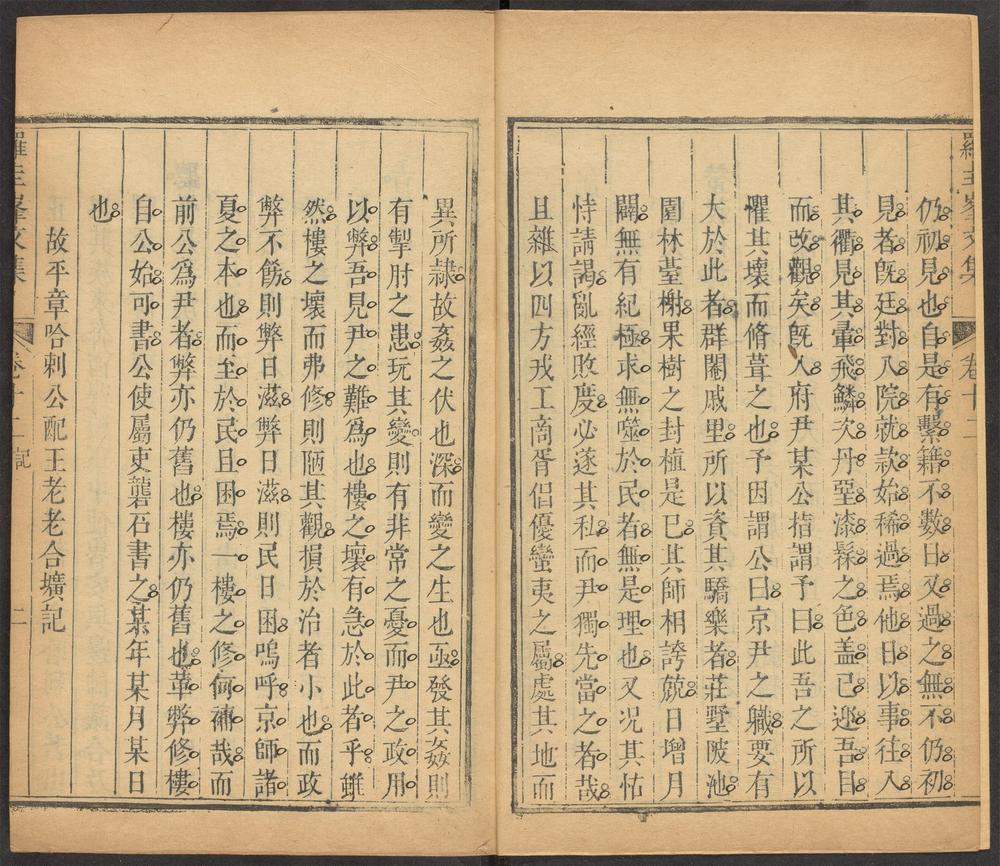 羅圭峯文集
卷十二
仍初見也自是有繫籍不數日又過之無不仍初
見者旣廷對入院就款始稀過焉他日以事往入
其衢見其翬飛鱗次丹堊漆髹之色盖已迎吾目
而改觀矣旣入府尹某公揖謂予曰此吾之所以
懼其壞而脩葺之也予因謂公曰京尹之職要有
大於此者群閹戚里所以資其驕樂者莊墅陂池
園林臺榭果樹之封植是已其師相誇競日增月
闢無有紀極求無噬於民者無是理也又况其怙
恃請謁亂經敗度必遂其私而尹獨先當之者哉
且雜以四方戎工商胥侣優蠻夷之屬處其地而
異所隸故姦之伏也深而變之生也亟發其姦則
有掣肘之患玩其變則有非常之憂而尹之政用
以弊吾見尹之難為也樓之壞有急於此者乎雖
然樓之壞而弗修則陋其觀損於治者小也而政
弊不飭則弊日滋弊日滋則民日困嗚呼京師諸
夏之本也而至於民且困焉一樓之修何補哉而
前公爲尹者弊亦仍舊也樓亦仍舊也革弊修樓
自公始可書公使屬吏礱石書之某年某月某日
也
故平章哈剌公配王老老合壙記
羅圭峯文集
卷十二 記
二